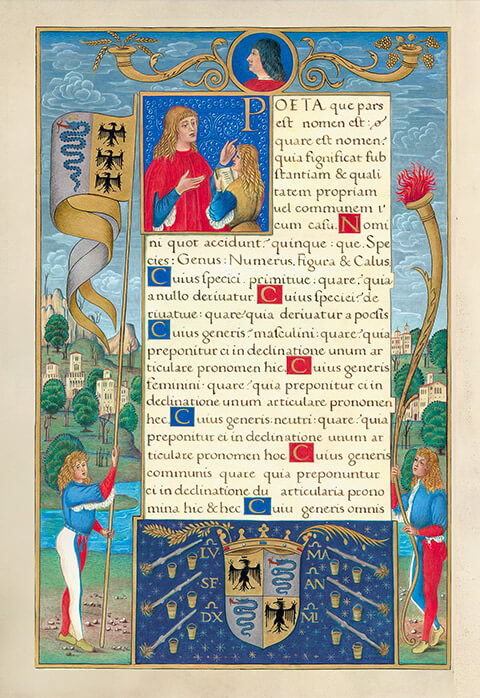 POETA que pars
est nomen est:
quare est nomen:
quia significat sub
stantiam & quali
tatem propriam
uel communem
cum casu. Nomi
ni quot accidunt: quinque: que. Spe
cies: Genus: Numerus, Figura & Casus
Cuius speciei primitiue: quare: quia
a nullo deriuatur. Cuius speciei: de
riuatiue: quare: quia deriuatur a poesis
Cuius generis masculini: quare: quia
preponitur ei in declinatione unum ar
ticulare pronomen hic. Cuius generis
feminini: quare: quia preponitur ei in
declinatione unum articulare pronomen
hec. Cuius generis neutri: quare: quia
preponitur ei in declinatione unum ar
ticulare pronomen hoc Cuius generis
communis quare quia preponuntur
ei in declinatione du articularia prono
mina hic & hec Cuiu generis omnis
LV MA
SF AN
DX MI